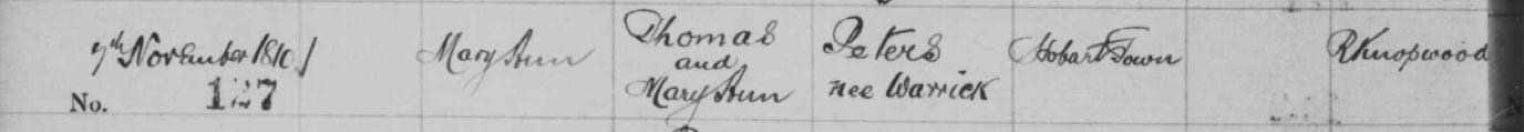 7th November 1810 Mary Ann Thomas Peters Hobart Town R Knopwood
and
No. 127 Mary Ann nee Warrick